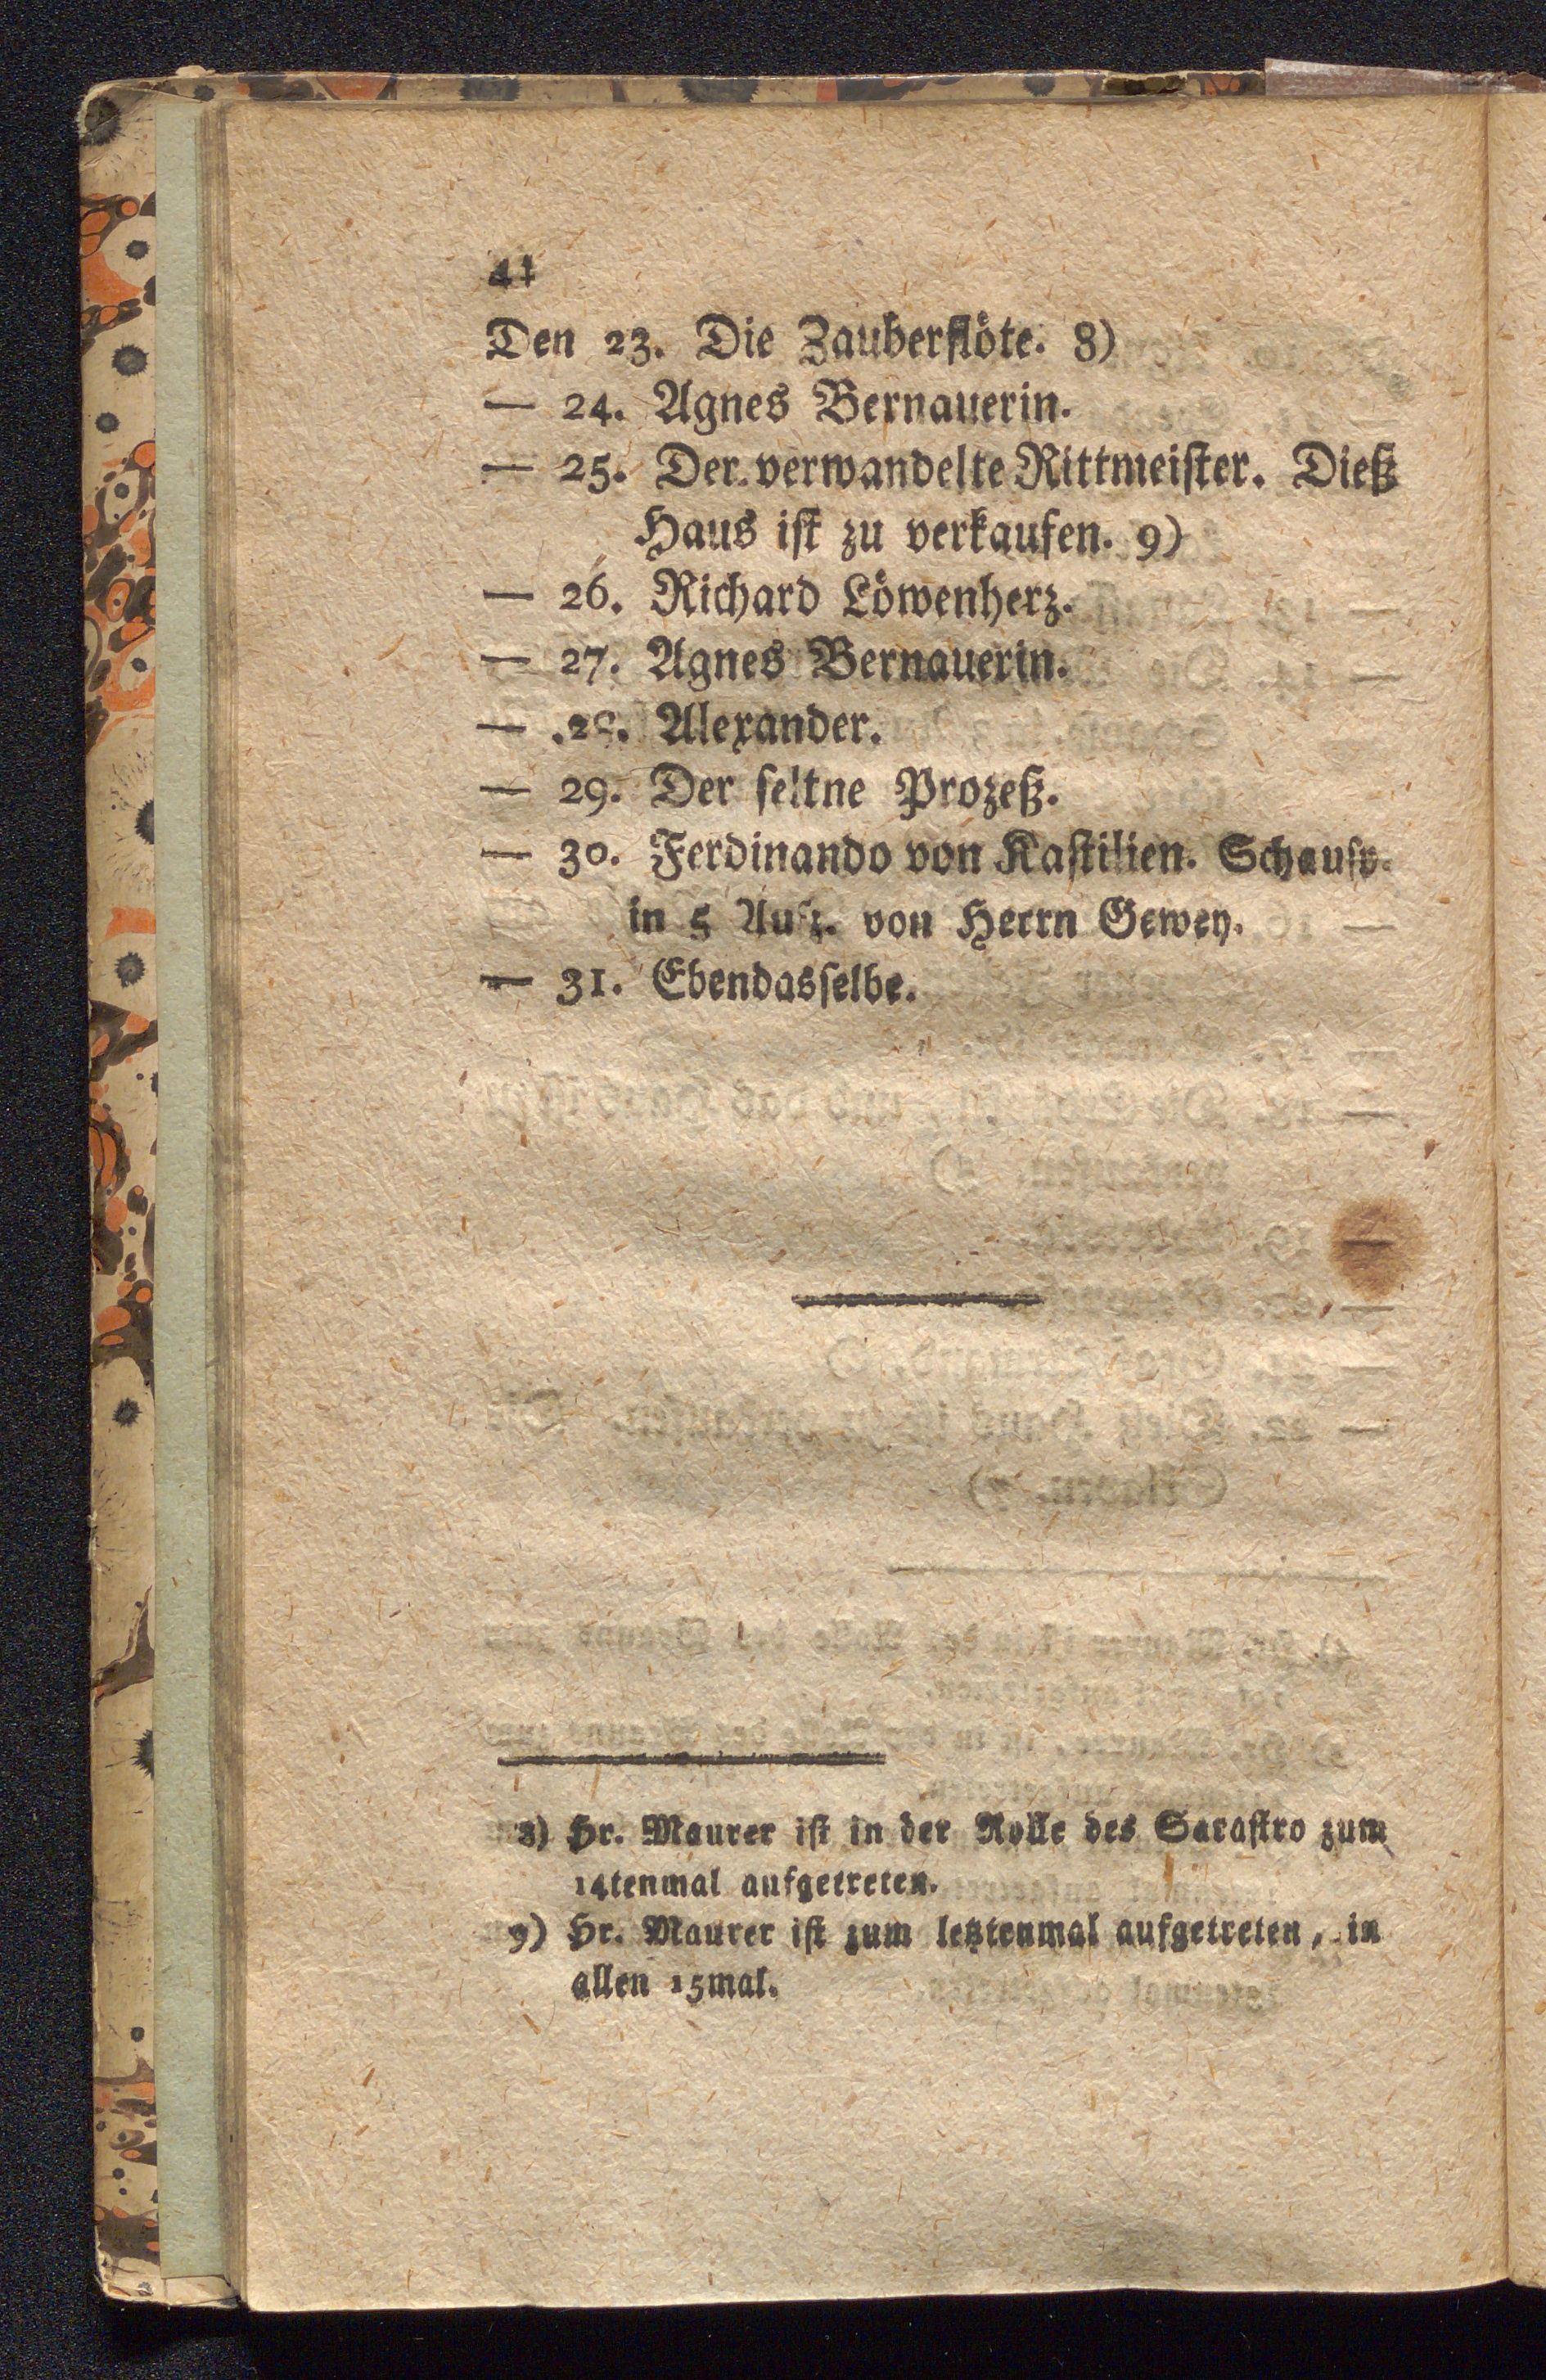 41
Den 23. Die Zauberflöte. 8)
— 24. Agnes Bernauerin.
— 25. Der verwandelte Rittmeister. Dieß
Haus ist zu verkaufen. 9)
— 26. Richard Löwenherz.
— 27. Agnes Bernauerin.
— 28. Alexander.
— 29. Der seltne Prozeß.
— 30. Ferdinando von Kastilien. Schausp.
in 5 Aufz. von Herrn Gewey.
— 31. Ebendasselbe.
8) Hr. Maurer ist in der Rolle des Sarastro zum
14tenmal aufgetreten.
9) Hr. Maurer ist zum letztenmal aufgetreten, in
allen 15mal.